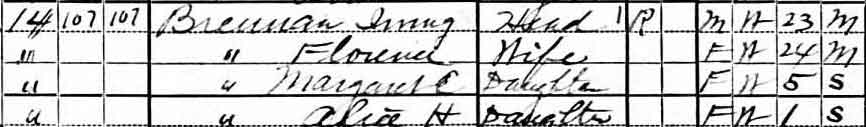 14 107 107 Brennan Irving Head 1 R M W 23 M
" " Florence Wife F W 24 M
" " Margaret C Daughter F W 5 S
" " Alice H Daughter F W 1 S